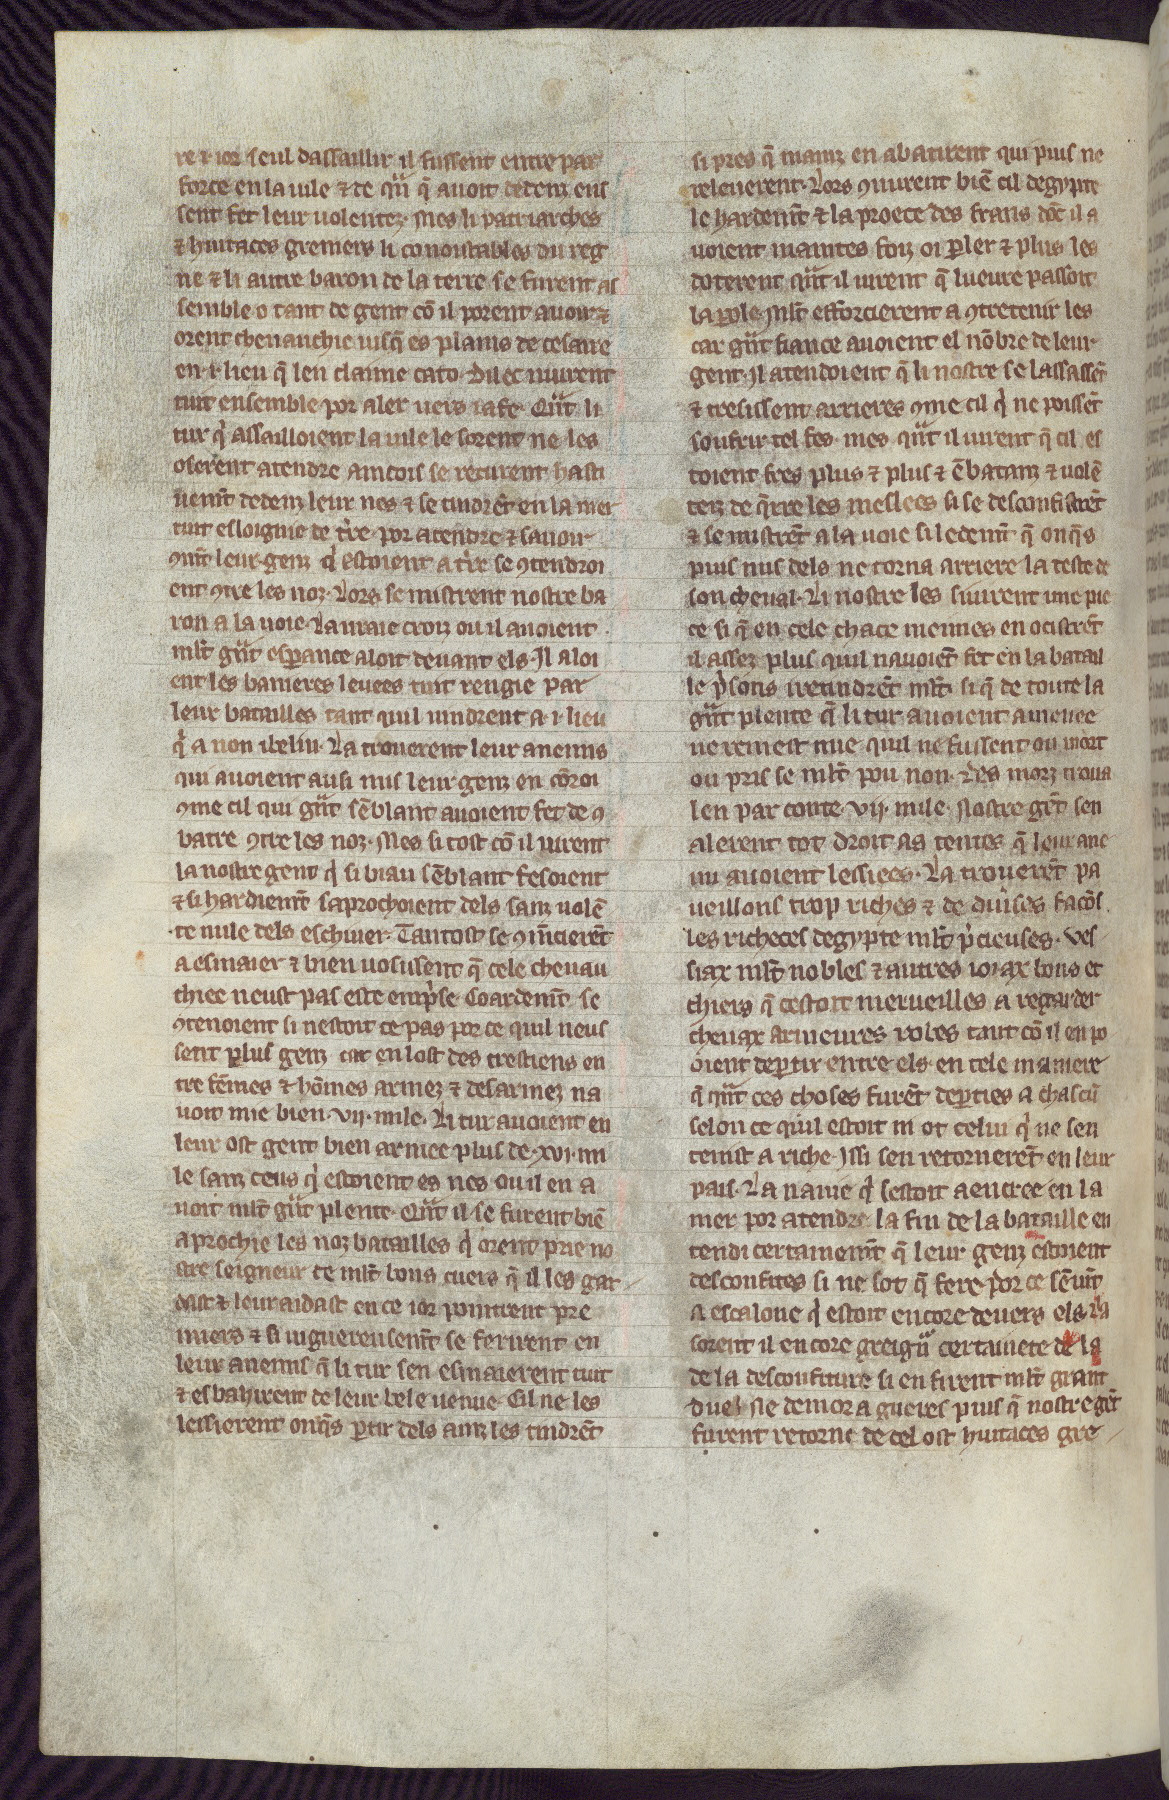 re .i. ior seul dassaillir il fussent entre par
force en la uile ⁊ de qͣnq̄ auoit dedenz eus
sent fet leur uolentez. Mes li patriarches
⁊ huitaces greniers li conoistables du reg
ne ⁊ li autre baron de la terre se furent as
semble o tant de gent cō il porent auoir ⁊
orent cheuauchie iusq̄ es plains de cesaire
en .i. lieu q̄ len claime cato. Diluec murent
tuit ensemble por aler uers iafe. Qͣnt li
tur qͥ assailloient la uile le sorent ne les
oserent atendre aincois se recturent hasti
uemt̄ dedenz leur nes ⁊ se tindrēt en la mer
tuit esloignie de t̄re por atendre ⁊ sauoir
ꝯmt̄ leur genz qͥ estoient a t̄re se ꝯtendroi
ent ꝯtre les noz. Lors se mistrent nostre ba
ron a la uoie. La uraie croiz ou il auoient
ml̄t gͣnt esꝑance aloit deuant els. Il aloi
ent les banieres leuees tuit rengie par
leur batailles tant quil uindrent a .i. lieu
qͥ a non ibelin. La trouerent leur anemis
qui auoient ausi mis leur genz en cōroi
ꝯme cil qui gͣnt sēblant auoient fet de ꝯ
batre ꝯtre les noz. Mes si tost cō il uirent
la nostre gent qͥ si biau sēblant fesoient
⁊ si hardiemt̄ saprochoient dels sanz uolē
te nule dels eschiuer. Tantost se ꝯmēcierēt
a esmaier ⁊ bien uosissent q̄ cele cheuau
chiee neust pas este emp̄se. Coardemt̄ se
ꝯtenoient si nestoit ce pas por ce quil neus
sent plus genz car en lost des crestiens en
tre fēmes ⁊ hōmes armez ⁊ desarmez na
uoit mie bien .vij. mile. Li tur auoient en
leur ost gent bien armee plus de .xvi. mi
le sanz ceus qͥ estoient es nes ou il en a
uoit ml̄t gͣnt plente. Qͣnt il se furent biē
aprochie les noz batailles qͥ orent prie no
stre seigneur de ml̄t bons cuers q̄ il les gar
dast ⁊ leur aidast en ce ior pointrent pre
miers ⁊ si uiguereusemt̄ se ferirent en
leur anemis q̄ li tur sen esmaierent tuit
⁊ esbahirent de leur bele uenue. Cil ne les
lessierent onq̄s ꝑtir dels ainz les tindrēt
si pres q̄ mainz en abatirent qui puis ne
releuerent. Lors ꝯnurent biē cil degypte
le hardemt̄ ⁊ la proece des frans dōt il a
uoient maintes foiz oi ꝑler ⁊ plus les
doterent qͣnt il uirent q̄ lueure passoit
la ꝑole. Ml̄t efforcierent a ꝯtretenir les
car gͣnt fiance auoient el nōbre de leur
gent. Il atendoient q̄ li nostre se lassassēt
⁊ tresissent arrieres ꝯme cil qͥ ne poissēt
soufrir tel fes. mes qͣnt il uirent q̄ cil es
toient fres plus ⁊ plus ⁊ ēbatanz ⁊ uolē
teiz de q̄rre les mellees si se desconfistrēt
⁊ se mistrēt a la uoie si ledemt̄ q̄ onq̄s
puis nus dels ne torna arriere la teste de
son cheual. Li nostre les suiurent une pie
ce si q̄ en cele chace meimes en ocistrēt
il assez plus quil nauoiēt fet en la batail
le pͥsons iretindrēt ml̄t si q̄ de toute la
gͣnt plente q̄ li tur auoient amenee
ne remest mie quil ne fussent ou mort
ou pris se ml̄t pou non. Des morz troua
len par conte .vij. mile. Nostre gēt sen
alerent tot droit as tentes q̄ leur ane
mi auoient lessiees. La trouerēt pa
ueillons trop riches ⁊ de diuͥses facōs.
les richeces degypte ml̄t p̄cieuses. Ves
siax ml̄t nobles ⁊ autres ioiax bons et
chiers q̄ cestoit merueilles a regarder
cheuax armeures robes tant cō il en po
oient deꝑtir entre els. en tele maniere
q̄ qͣnt ces choses furēt deꝑties a chascū
selon ce quil estoit ni ot celui qͥ ne sen
tenist a riche. Issi sen retornerēt en leur
pais. La nauie qͥ sestoit aentree en la
mer por atendre la fin de la bataille en
tendi certainemt̄ q̄ leur genz estoient
desconfites si ne sot q̄ fere por ce sē uīt
a escalone qͥ estoit encore deuers els. La
sorent il encore greigͣn certainete de la
de la desconfiture si en firent ml̄t grant
duel. Ne demora gueres puis q̄ nostre gēt
furent retorne de cel ost huitaces gre